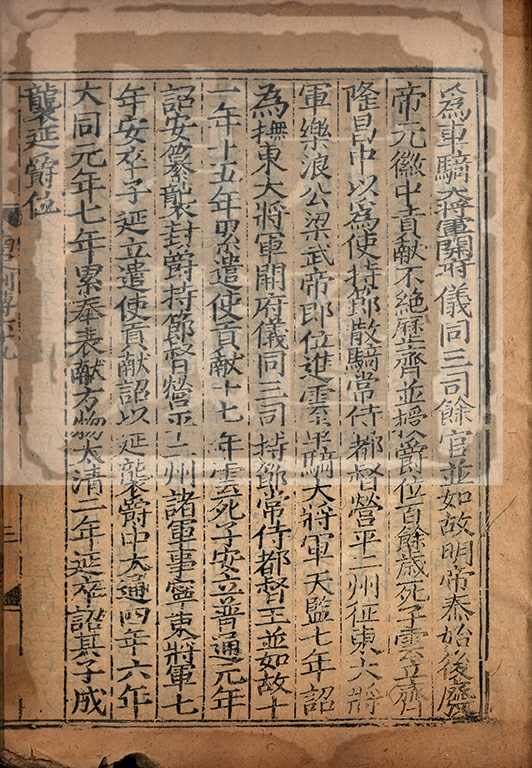 為車騎大將軍開府儀同三司餘官並如故明帝泰始後廢
帝元徽中貢献不絶歷齊並授爵位百餘歳死子雲立齊
隆昌中以為使持節散騎常侍都督營平二州征東大將
軍樂浪公梁武帝即位進雲車騎大將軍天監七年詔
為撫東大將軍開府儀同三司持節常侍都督王並如故十
一年十五年累遣使貢献十七年雲死子安立普通元年
詔安纂襲封爵持節督營平二州諸軍事寧東將軍七
年安卒子延立遣使貢献詔以延襲爵中大通四年六年
大同元年七年累奉表献方物太清二年延卒詔其子成
襲延爵位
列傳
三